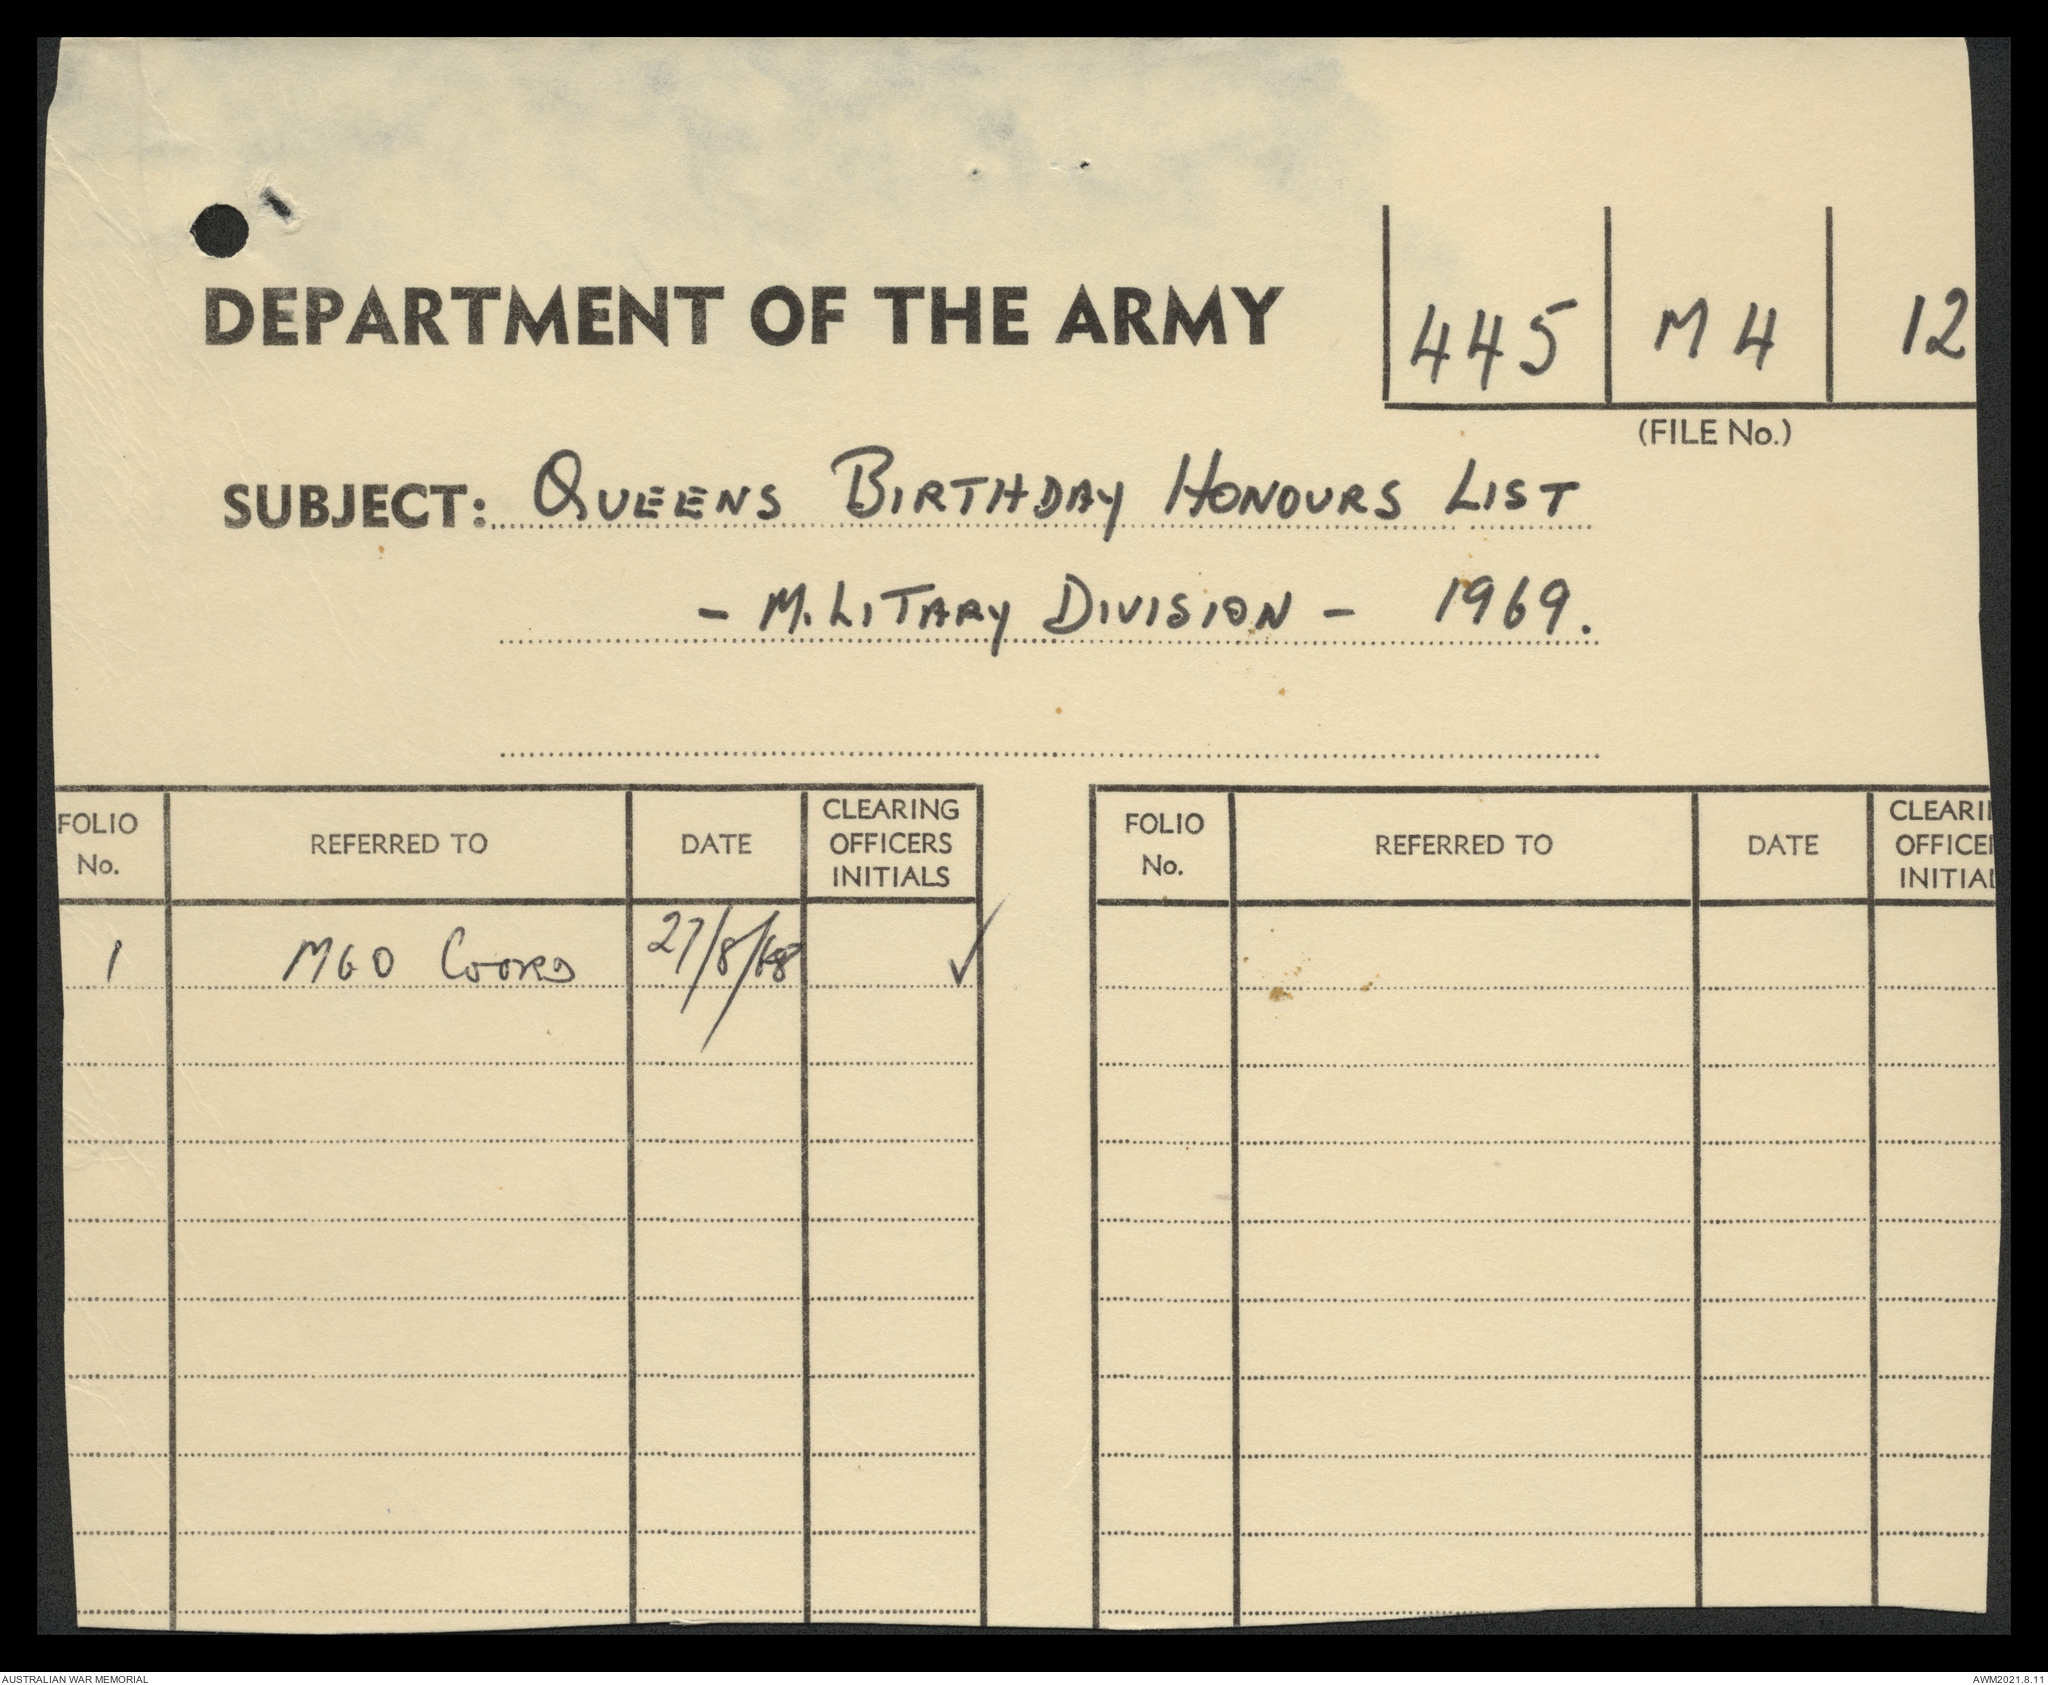 DEPARTMENT OF THE ARMY
445 M4 12
(FILE No.)
SUBJECT: QUEENS BIRTHDAY HONOURS LIST
- MILITARY DIVISION - 1969.
FOLIO No. REFERRED TO DATE CLEARING OFFICERS INITIALS
FOLIO No. REFERRED TO DATE CLEARI OFFICE INITIAL
1 MGO COORD 27/8/68 ✓
AUSTRALIAN WAR MEMORIAL
AWM2021.8.11